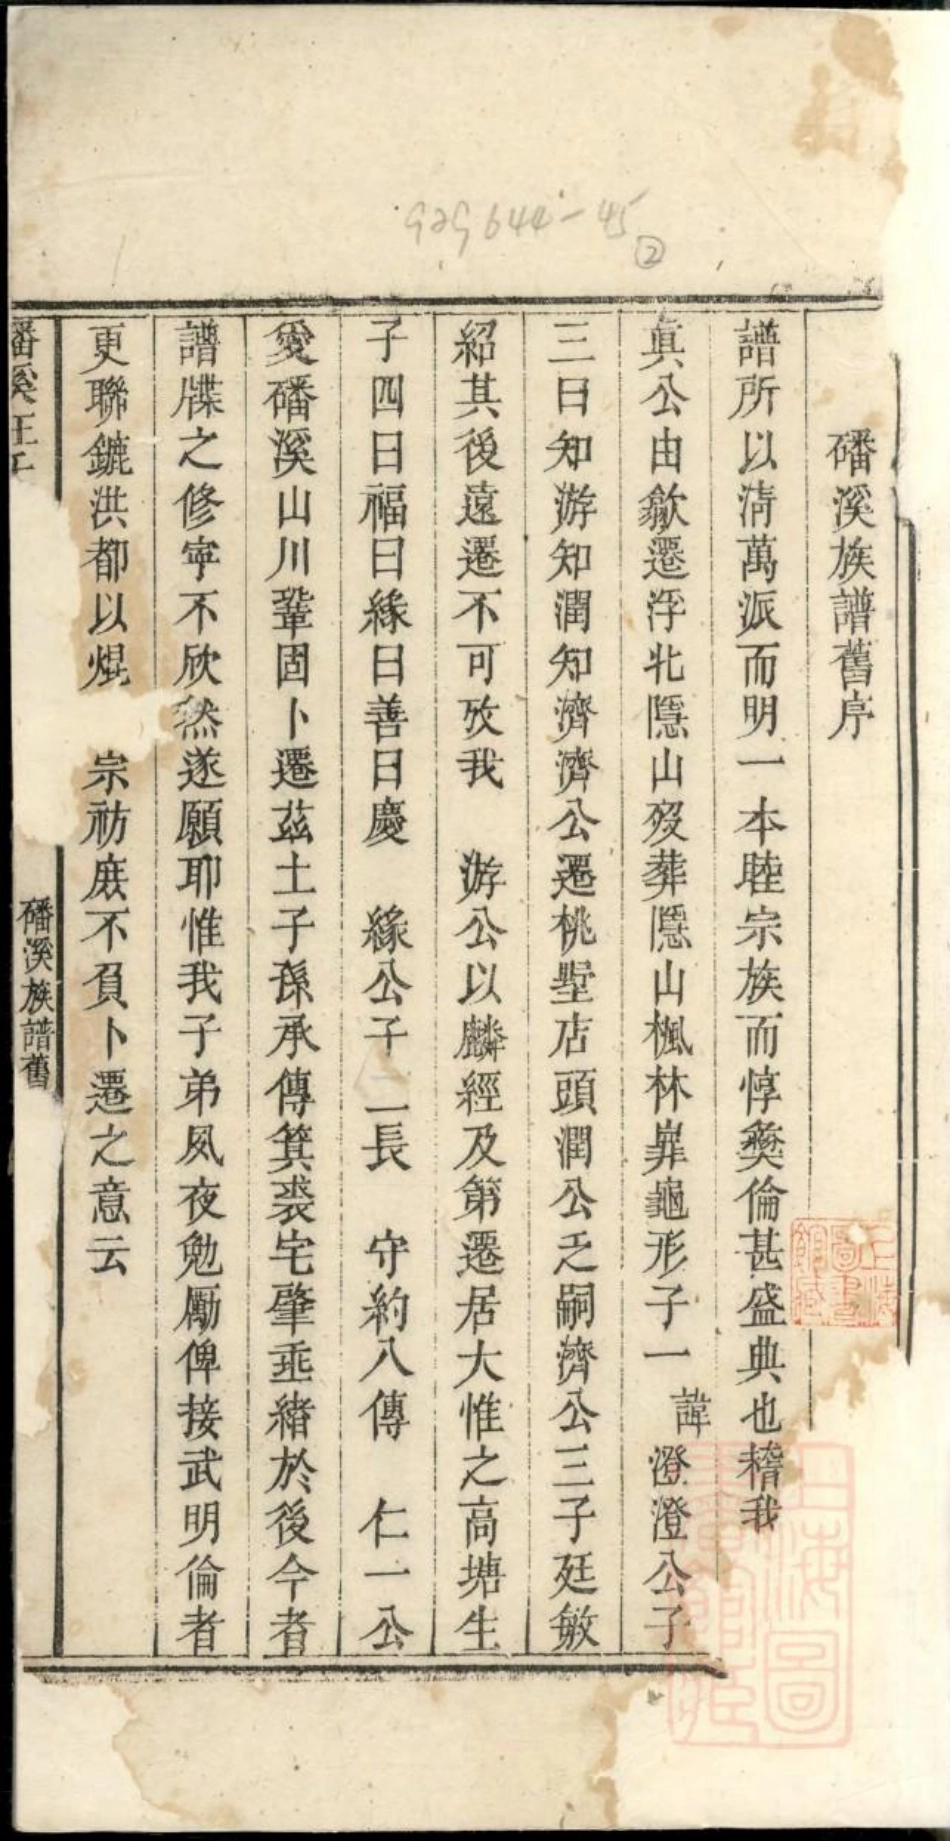 929644-45
②
磻溪族譜舊序
譜所以清萬派而明一本睦宗族而惇彝倫甚盛典也稽我
眞公由歙遷浮北隱山歿葬隱山楓林嶴龜形子一 諱澄澄公子
三曰知游知潤知濟濟公遷桃墅店頭潤公乏嗣濟公三子廷敏
紹其後遠遷不可攷我 游公以麟經及第遷居大惟之高塘生
子四曰福曰緣曰善曰慶 緣公子二長 守約八傳 仁一公
愛磻溪山川鞏固卜遷茲土子孫承傳箕裘宅肇垂緒於後今者
譜牒之修寜不欣然遂願耶惟我子弟夙夜勉勵俾接武明倫者
更聯鑣洪都以焜 宗祊庶不負卜遷之意云
磻溪汪
磻溪族譜舊
上海圖書館藏
上海圖書館藏